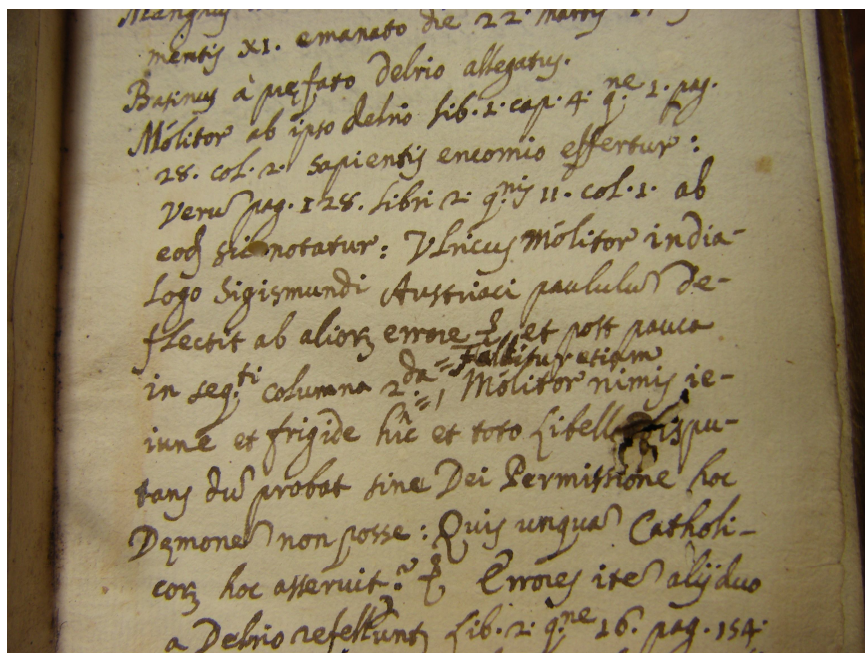 mentis XI. emanato die 22. martis
Basinus à pręfato delrio allegatus.
Mólitor ab ipso delrio lib. 2. cap. 4. q.ne 2. pag.
28. col. 2. sapientis encomio effertur:
Verũ pag. 128. libri 2. q.nis 11. col. 1. ab
eodẽ sic notatur: Vlricus Mólitor in dia-
logo Sigismundi Austriaci paululũ de-
flectit ab aliorꝫ errore et post pauca
Fallitur etiam
in seq.ti columna 2.da = Mólitor nimis ie-
iune et frigide hic et toto libello dispu-
tans dũ probat sine Dei Permissione hoc
Dęmonẽ non posse: Quis unquã Catholi-
corꝫ hoc asseruit? Errores itẽ alij duo
a Delrio refelluntꝫ lib. 2. q.ne 16. pag. 154.